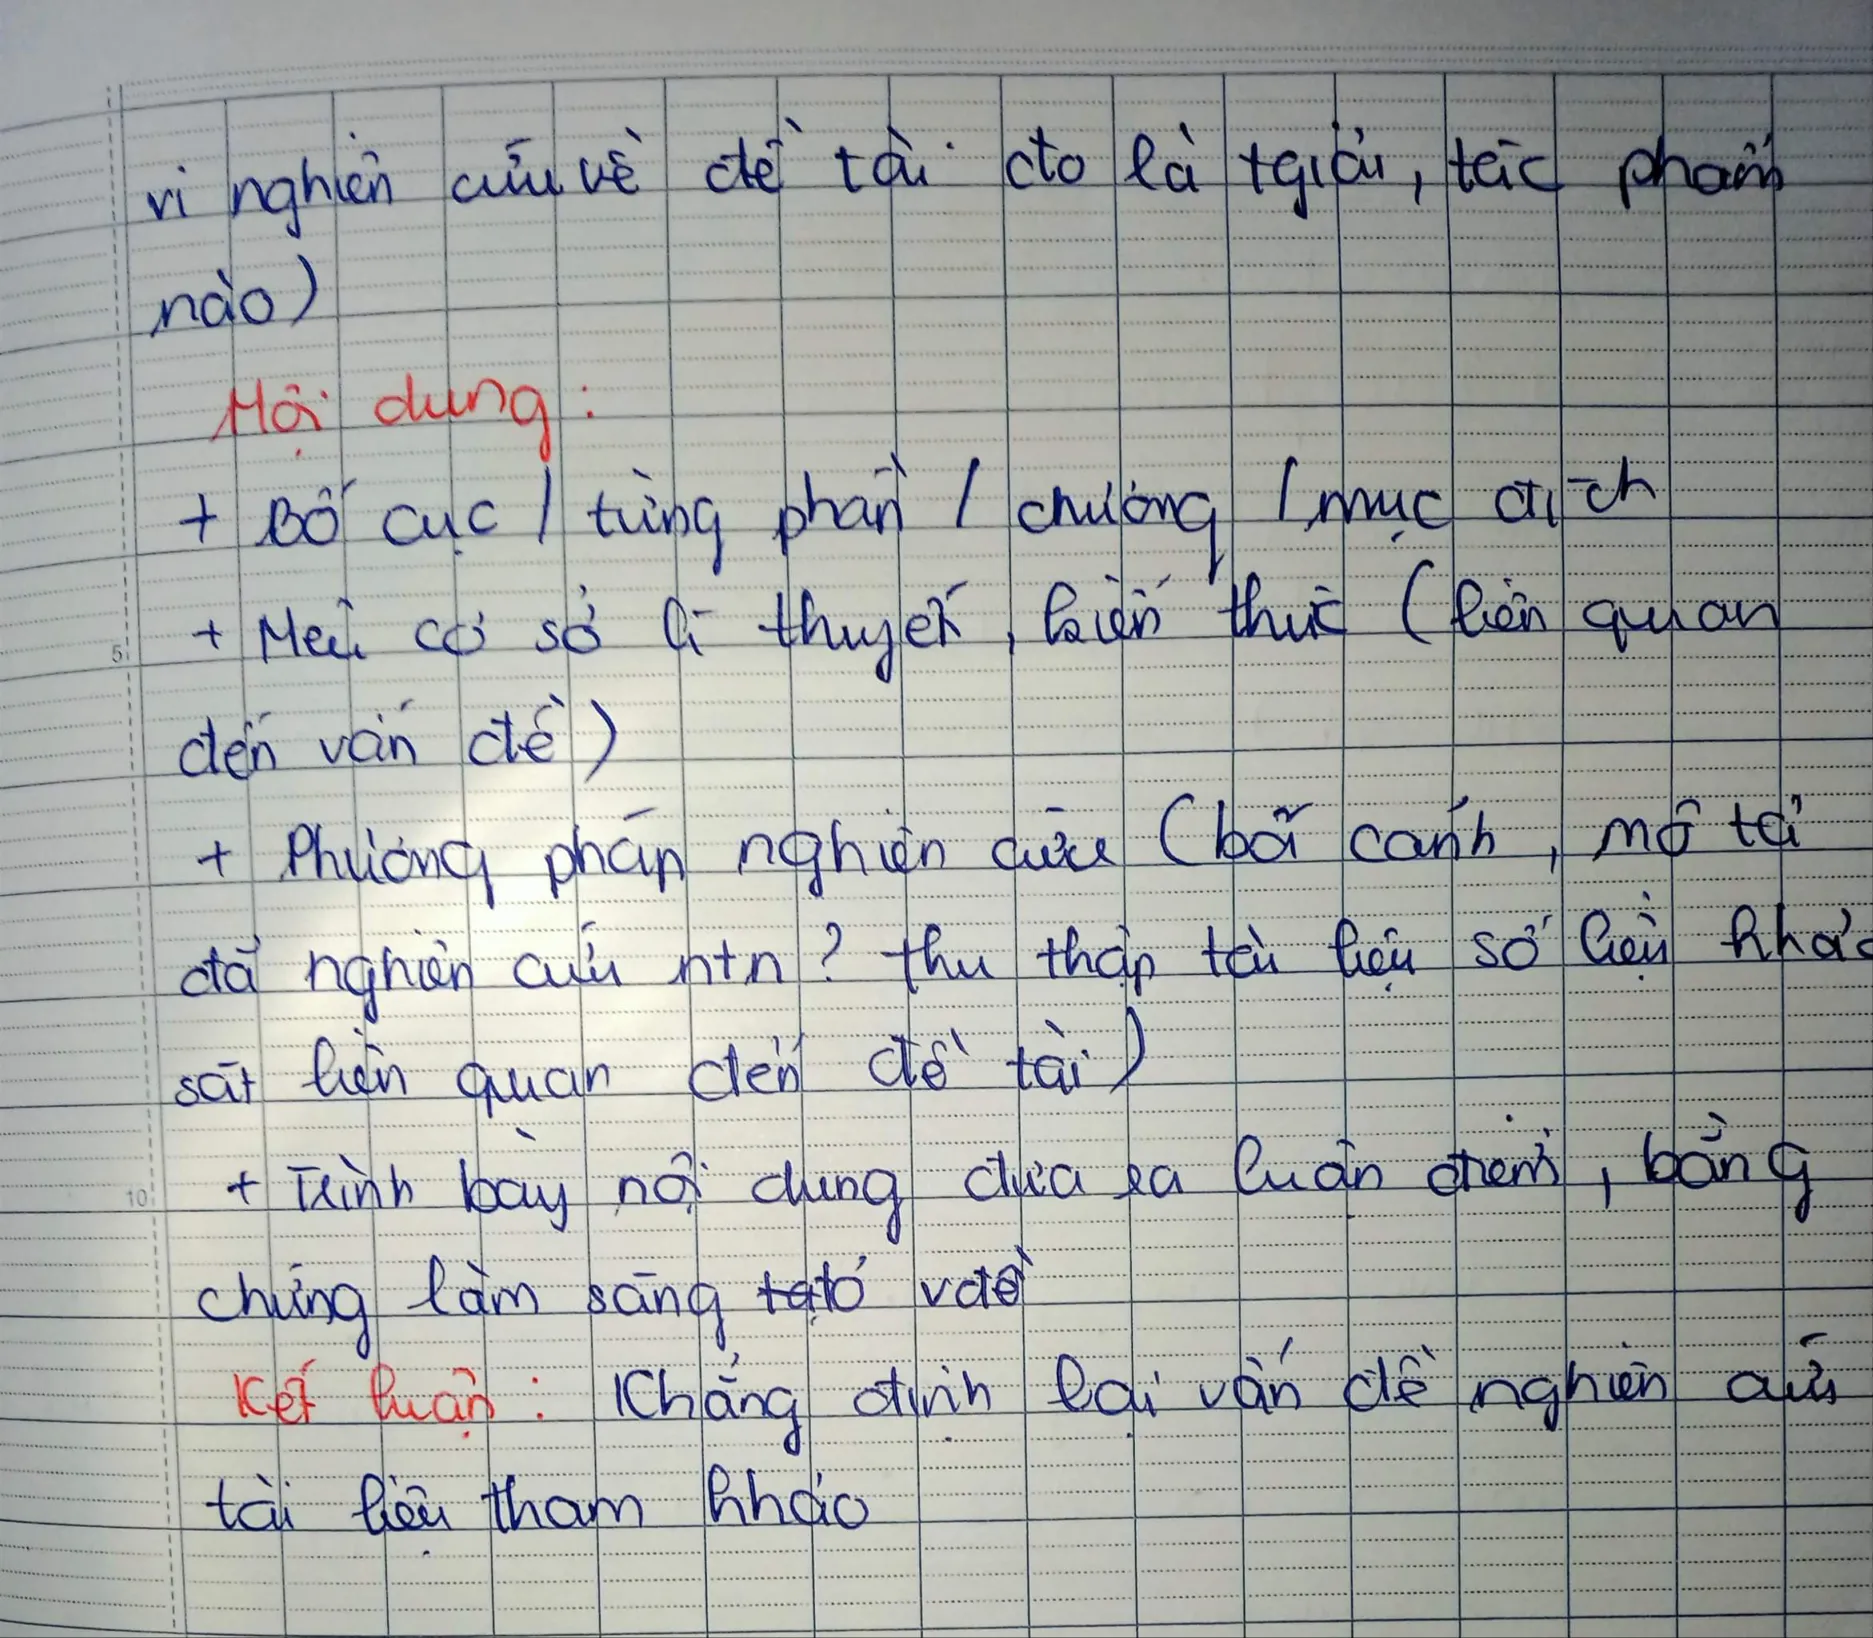 vi nghiên cứu về đề tài đó là tgiả, tác phẩm
nào)
Nội dung:
+ Bố cục / từng phần / chương / mục đích
+ Nêu cơ sở lí thuyết, kiến thức (liên quan
đến vấn đề)
+ Phương pháp nghiên cứu (bối cảnh, mô tả
đã nghiên cứu ntn? thu thập tài liệu số liệu khảo
sát liên quan đến đề tài)
+ Trình bày nội dung đưa ra luận điểm, bằng
chứng làm sáng tỏ vđề
Kết luận: Khẳng định lại vấn đề nghiên cứu
tài liệu tham khảo
5
10